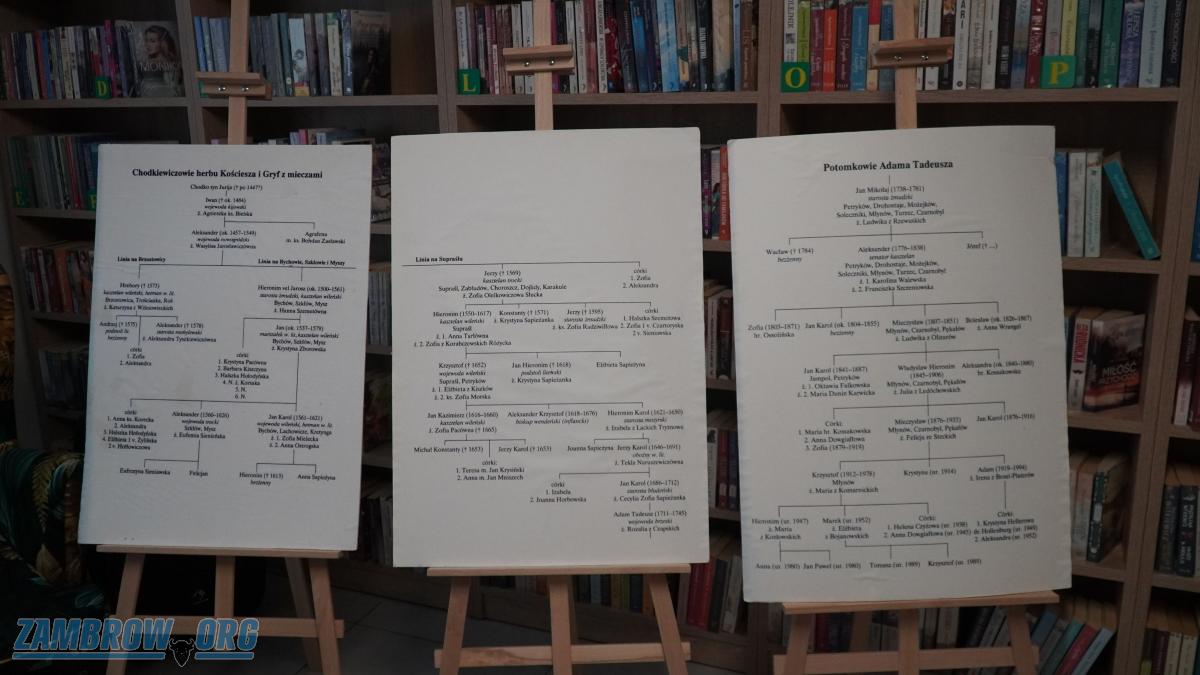 Chodkiewiczowie herbu Kościesza i Gryf z mieczami
Chodko syn Jurija († po 1447?)
Iwan († ok. 1484)
wojewoda kijowski
ż. Agnieszka ks. Bielska
Aleksander (ok. 1457-1549)
wojewoda nowogródzki
ż. Wasylisa Jarosławiczówna
Agrafena
m. ks. Bohdan Zasławski
Linia na Brzostowicy
Linia na Bychowie, Szkłowie i Myszy
Hrehory († 1572)
kasztelan wileński, hetman w. lit.
Brzostowica, Trościanka, Roś
ż. Katarzyna z Wiśniowieckich
Hieronim vel Jarosz (ok. 1500-1561)
starosta żmudzki, kasztelan wileński
Bychów, Szkłów, Mysz
ż. Hanna Szemetówna
Andrzej († 1575)
podstoli lit.
bezżenny
Aleksander († 1578)
starosta mohylewski
ż. Aleksandra Tyszkiewiczówna
Jan (ok. 1537-1579)
marszałek w. lit., kasztelan wileński
Bychów, Szkłów, Mysz
ż. Krystyna Zborowska
córki
1. Zofia
2. Aleksandra
córki
1. Krystyna Pacówna
2. Barbara Kiszczyna
3. Halszka Hołodyńska
4. N. ż. Korsaka
5. N.
6. N.
córki
1. Anna ks. Korecka
2. Aleksandra
3. Halszka Hołodyńska
4. Elżbieta 1 v. Żylińska
2 v. Hołłowiczowa
Aleksander (1560-1626)
wojewoda trocki
Szkłów, Mysz
ż. Eufemia Sienińska
Jan Karol (1561-1621)
wojewoda wileński, hetman w. lit.
Bychów, Lachowicze, Kretynga
ż. 1. Zofia Mielecka
ż. 2. Anna Ostrogska
Eufrozyna Sieniawska
Felicjan
Hieronim († 1613)
bezżenny
Anna Sapieżyna
Linia na Supraślu
Jerzy († 1569)
kasztelan trocki
Supraśl, Zabłudów, Choroszcz, Dojlidy, Karakule
ż. Zofia Olelkowiczowa Słucka
córki
1. Zofia
2. Aleksandra
Hieronim (1550-1617)
kasztelan wileński
Supraśl
ż. 1. Anna Tarłówna
ż. 2. Zofia z Korabczewskich Różycka
Konstanty († 1571)
ż. Krystyna Sapieżanka
Jerzy († 1595)
starosta żmudzki
ż. ks. Zofia Radziwiłłowa
córki
1. Halszka Szemetowa
2. Zofia 1 v. Czartoryska
2 v. Sieniawska
Krzysztof († 1652)
wojewoda wileński
Supraśl, Petryków
ż. 1. Elżbieta z Kiszków
ż. 2. ks. Zofia Horska
Jan Hieronim († 1618)
podstoli litewski
ż. Krystyna Sapieżanka
Elżbieta Sapieżyna
Jan Kazimierz (1616-1660)
kasztelan wileński
ż. Zofia Pacówna († 1665)
Aleksander Krzysztof (1618-1676)
biskup wendeński (inflancki)
Hieronim Karol (1621-1650)
starosta mozyrski
ż. Izabela z Lackich Tryznowa
Michał Konstanty († 1653)
Jerzy Karol († 1653)
córki:
1. Teresa m. Jan Krysiński
2. Anna m. Jan Mniszech
Joanna Sapieżyna
Jerzy Karol (1646-1691)
oboźny w. lit.
ż. Tekla Naruszewiczówna
córki
1. Izabela
2. Joanna Horbowska
Jan Karol (1686-1712)
starosta błudeński
ż. Cecylia Zofia Sapieżanka
Adam Tadeusz (1711-1745)
wojewoda brzeski
ż. Rozalia z Czapskich
Potomkowie Adama Tadeusza
Jan Mikołaj (1738-1781)
starosta żmudzki
Petryków, Drohostaje, Możejków,
Soleczniki, Młynów, Turzec, Czarnobyl
ż. Ludwika z Rzewuskich
Wacław († 1784)
bezżenny
Aleksander (1776-1838)
senator kasztelan
Petryków, Drohostaje, Możejków,
Soleczniki, Młynów, Turzec, Czarnobyl
ż. 1. Karolina Walewska
ż. 2. Franciszka Szczeniowska
Józef († ...)
Zofia (1803-1871)
hr. Ossolińska
Jan Karol (ok. 1804-1855)
bezżenny
Mieczysław (1807-1851)
Młynów, Czarnobyl, Pękałów
ż. Ludwika z Olizarów
Bolesław (ok. 1826-1867)
ż. Anna Wrangel
Jan Karol (1841-1887)
Jampol, Petryków
ż. 1. Oktawia Fulkowska
ż. 2. Maria Dunin Karwicka
Władysław Hieronim
(1845-1906)
Młynów, Czarnobyl, Pękałów
ż. Julia z Ledóchowskich
Aleksandra (ok. 1840-1880)
hr. Kossakowska
Córki:
1. Maria hr. Kossakowska
2. Anna Dowgiałłowa
3. Zofia (1879-1919)
Mieczysław (1876-1933)
Młynów, Pękałów
ż. Felicja ze Steckich
Jan Karol (1876-1916)
Krzysztof (1912-1978)
Młynów
ż. Maria z Komarnickich
Krystyna (ur. 1914)
Adam (1919-1994)
ż. Irena z Broel-Platerów
Hieronim (ur. 1947)
ż. Maria
z Kozłowskich
Marek (ur. 1952)
ż. Elżbieta
z Bojanowskich
Córki:
1. Helena Czyżowa (ur. 1938)
2. Anna Dowgiałłowa (ur. 1945)
Córki:
1. Krystyna Hellerowa
de Hollenburg (ur. 1949)
2. Aleksandra (ur. 1952)
Anna (ur. 1980)
Jan Paweł (ur. 1980)
Tomasz (ur. 1989)
Krzysztof (ur. 1989)
D
L
O
P
E
MONIK
MIŁOŚĆ
ZAMBROW.ORG